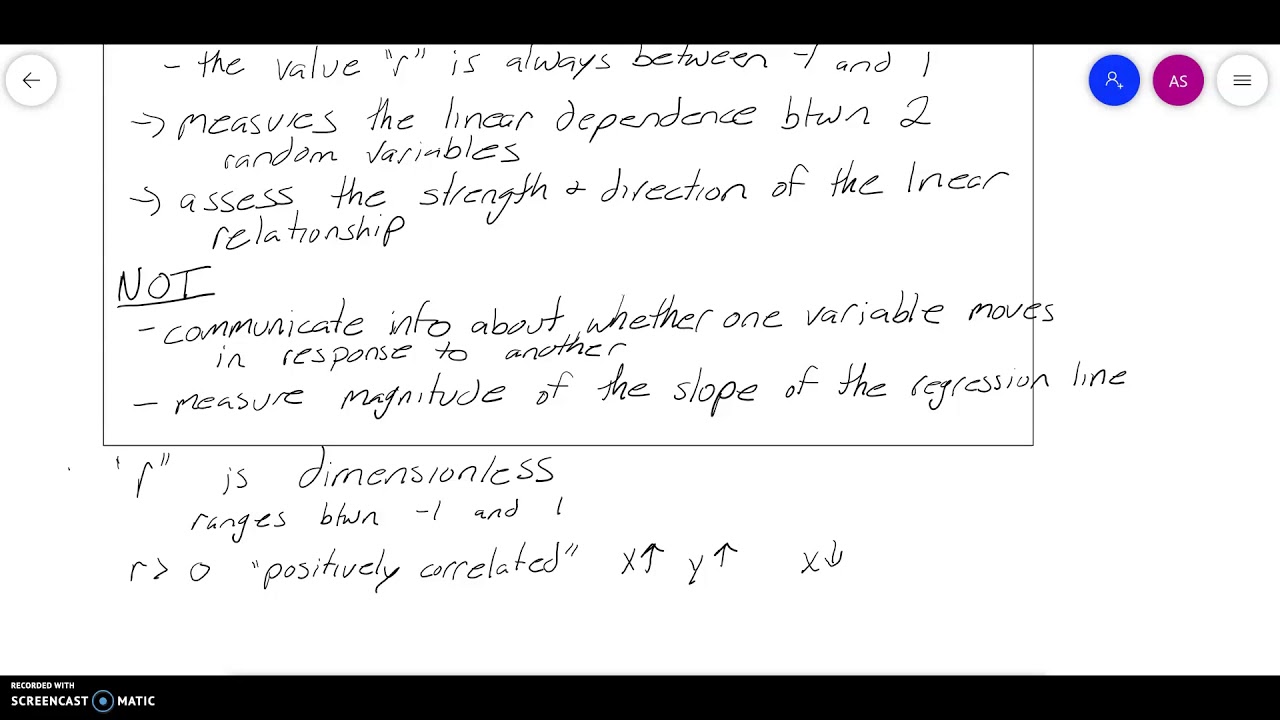 - the value "r" is always between -1 and 1
→ measures the linear dependence btwn 2
random variables
→ assess the strength & direction of the linear
relationship
NOT
- communicate info about whether one variable moves
in response to another
- measure magnitude of the slope of the regression line
"r" is dimensionless
ranges btwn -1 and 1
r> 0 "positively correlated" x↑ y↑ x↓
AS
RECORDED WITH
SCREENCAST MATIC